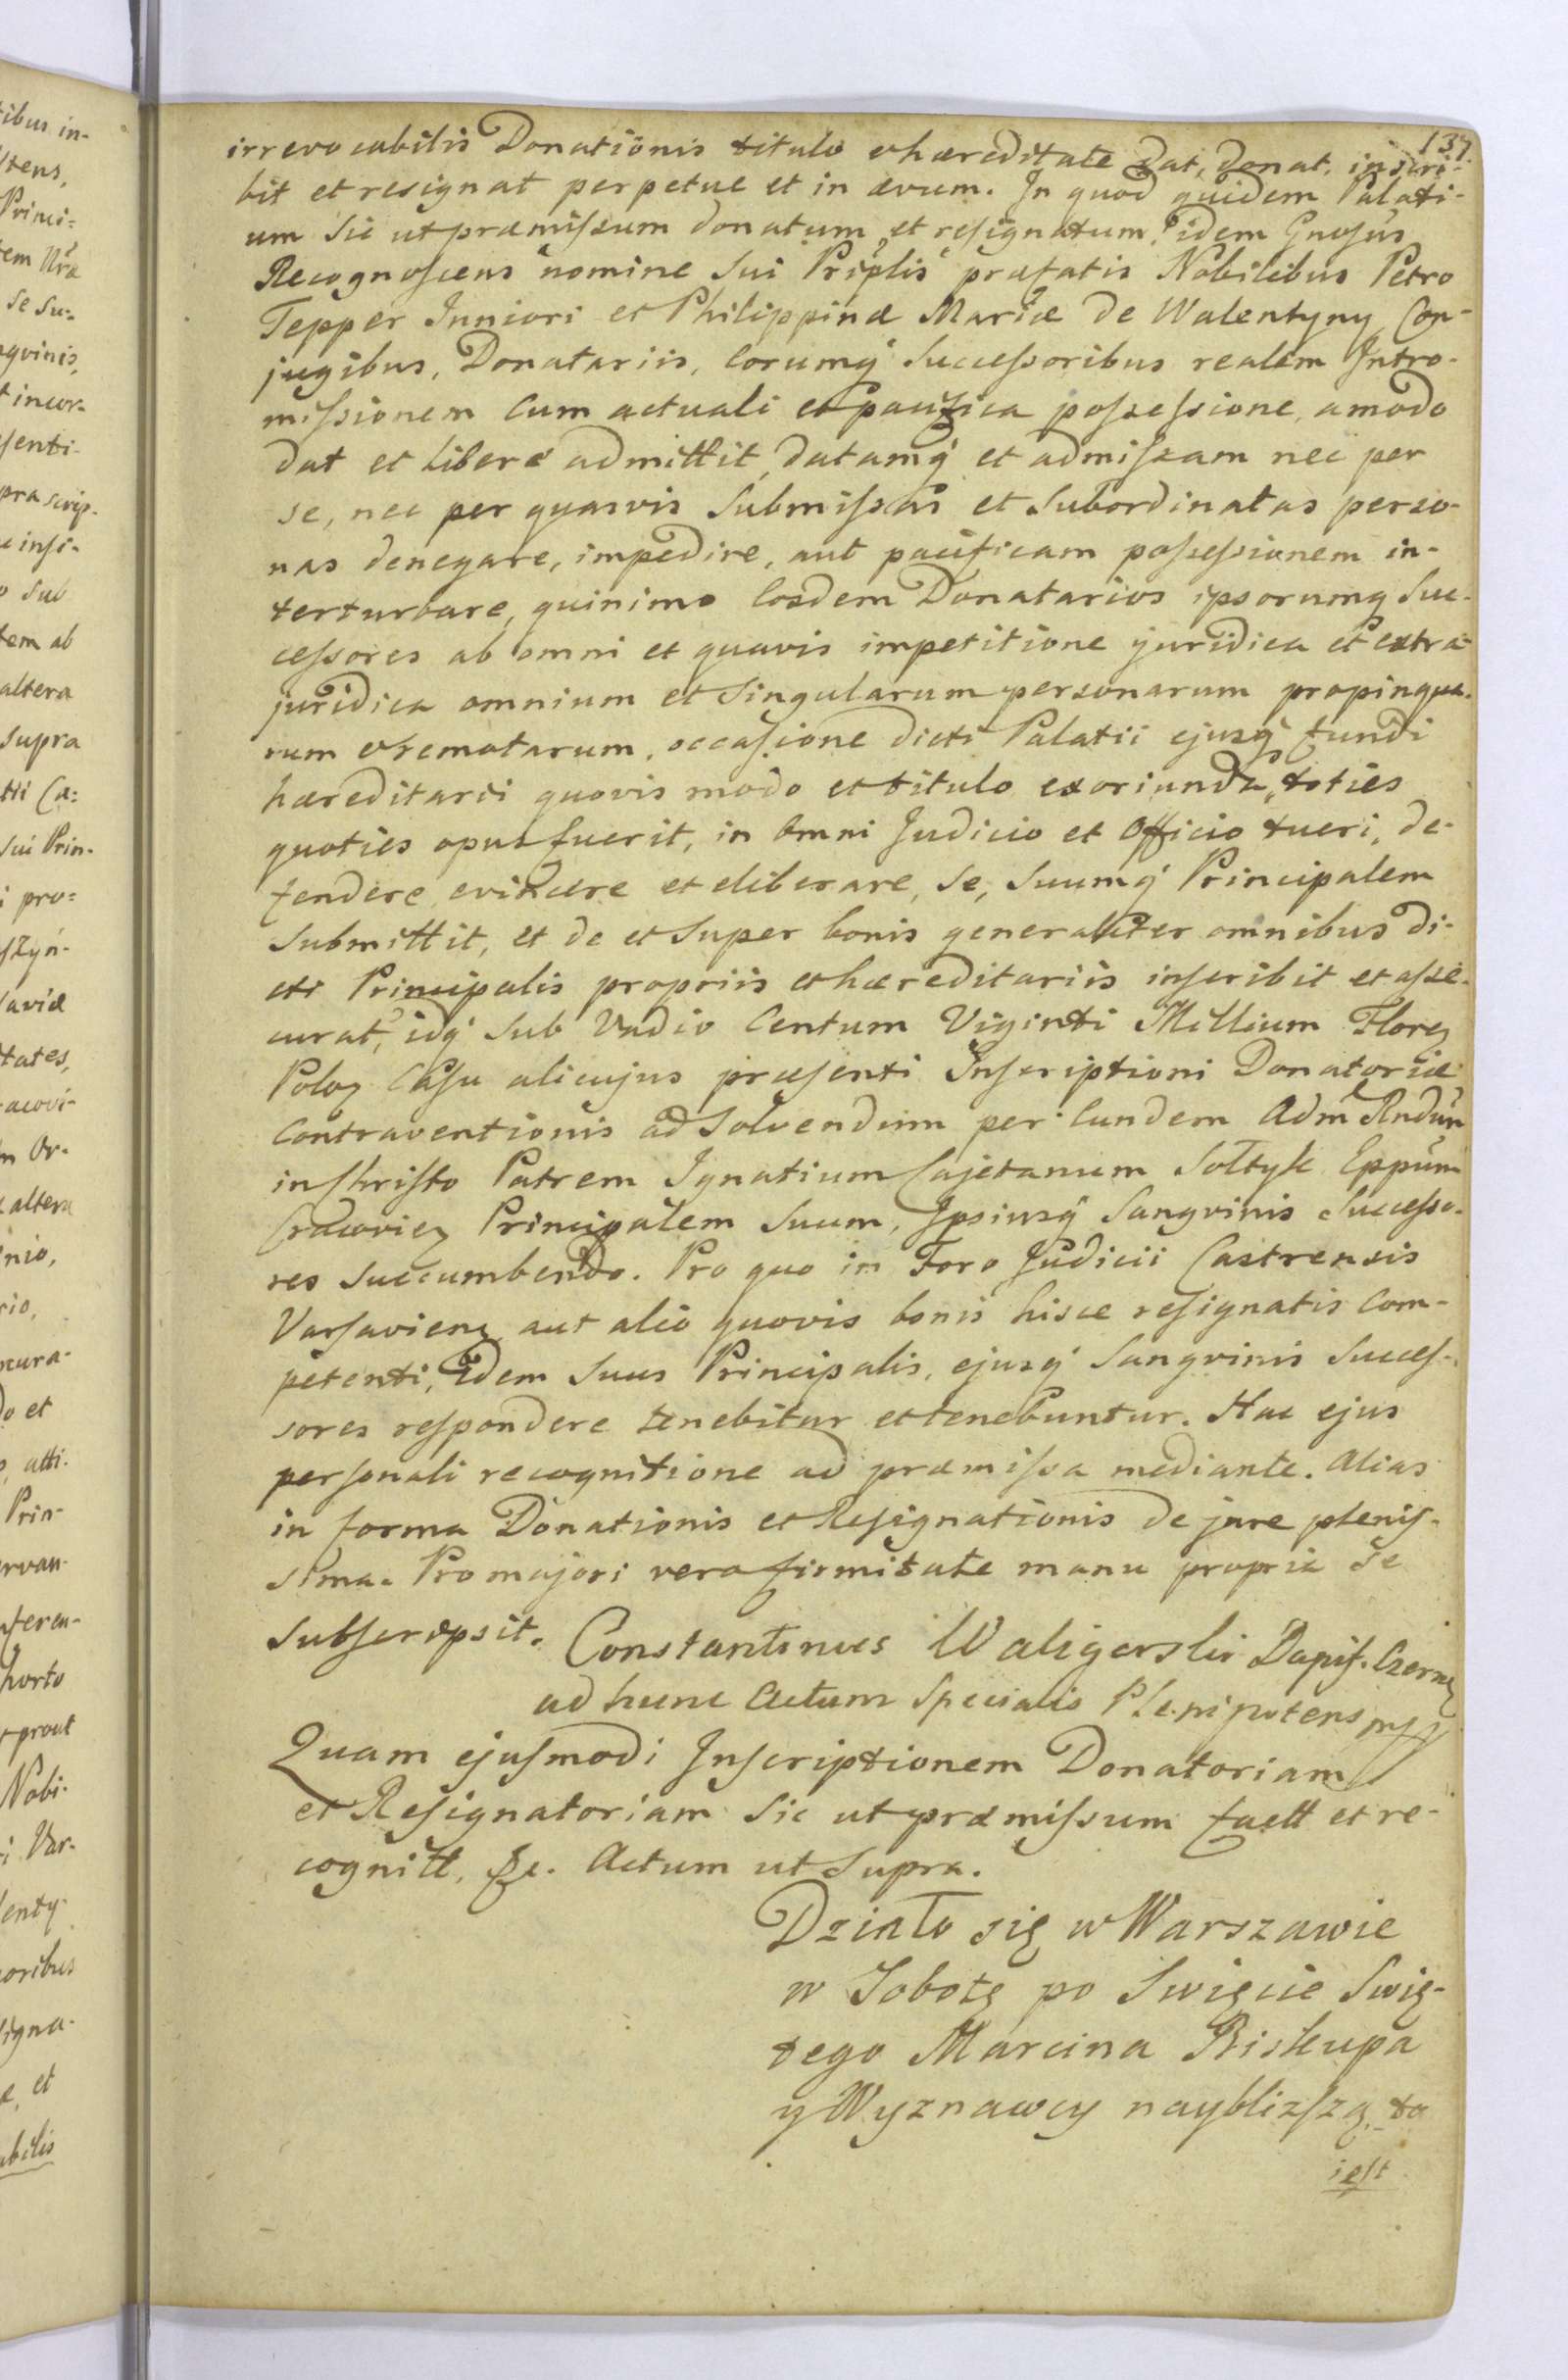 137.
irrevocabilis Donationis titulo et hæreditate dat, donat, inscri-
bit et resignat perpetue et in ævum. In quod quidem Palati-
um sic ut præmissum donatum et resignatum, idem Gnosus
Recognoscens nomine sui Priplis præfatis Nobilibus Petro
Tepper Inniori et Philippinæ Mariæ de Walentyny Con-
jugibus, Donatariis, eorumq́ Successoribus realem Intro-
missionem cum actuali et pacifica possessione, amodo
dat et libere admittit, datamq́ et admissam nec per
se, nec per quasvis submissas et subordinatas perso-
nas denegare, impedire, aut pacificam possessionem in-
terturbare, quinimo eosdem Donatarios ipsorumq Suc-
cessores ab omni et quavis impetitione juridica et extra-
juridica omnium et singularum personarum propinqua-
rum et remotarum, occasione dicti Palatii ejusq́ fundi
hæreditarii quovis modo et titulo exoriunda, toties
quoties opus fuerit, in omni Judicio et Officio tueri, de-
fendere evincere et eliberare, se, suumq́ Principalem
submittit, et de et super bonis generaliter omnibus di-
cti Principalis propriis et hæreditariis inscribit et asse-
curat, idq́ sub Vadio Centum Viginti Millium Floreꝫ
Poloꝫ Casu alicujus præsenti Inscriptioni Donatoriæ
Contraventionis ad solvendum per eundem Adm Rndum
in Christo Patrem Ignatium Cajetanum Sołtyk Eppum
Cracovieꝫ Principalem suum, Ipsiusq́ Sangvinis Successo-
res succumbendo. Pro quo in Foro Judicii Castrensis
Varsavienꝫ aut alio quovis bonis hisce resignatis com-
petenti, idem suus Principalis, ejusq́ Sangvinis Succes-
sores respondere tenebitur et tenebuntur. Hac ejus
personali recognitione ad præmissa mediante. Alias
in forma Donationis et Resignationis de jure plenis-
sima. Pro majori vero firmitate manu propria se
subscripsit. Constantinus Waligorski Dapif. Czerneꝫ
ad hunc Actum Specialis Plenipotens mpp
Quam ejusmodi Inscriptionem Donatoriam
et Resignatoriam sic ut præmissum factt et re-
cognitt, &c. Actum ut supra.
Działo się w Warszawie
w Sobotę po Swięcie Swię-
tego Marcina Biskupa
y Wyznawcy naybliższą, to
iest